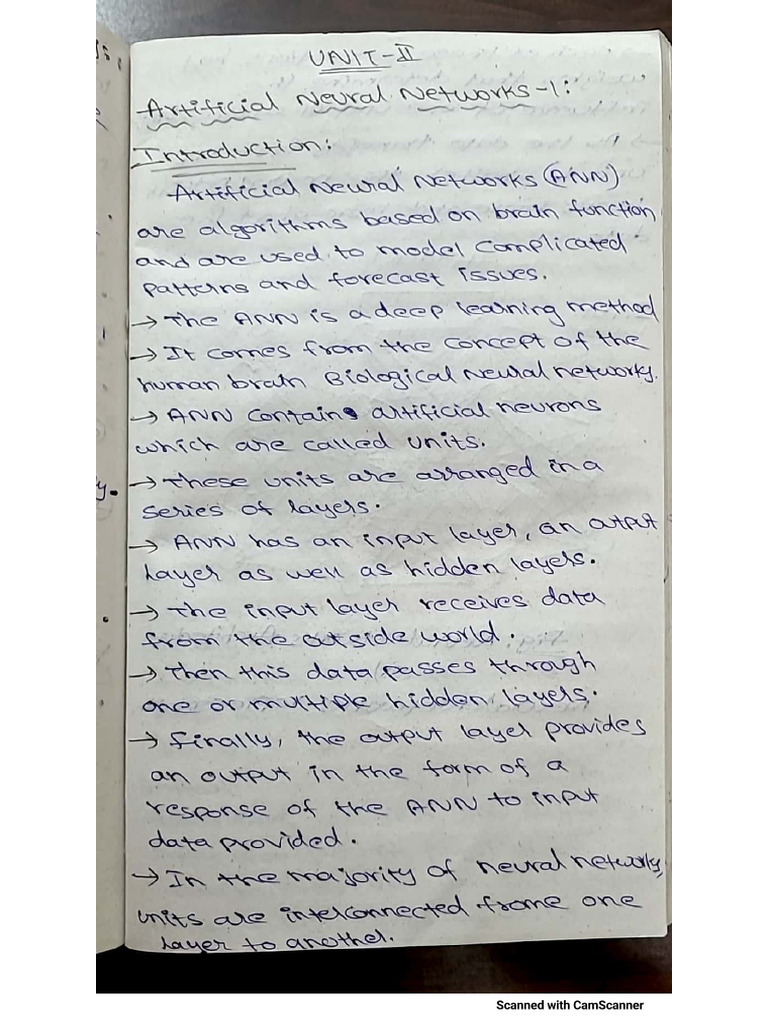 UNIT-II
Artificial Neural Networks-1:
Introduction:
Artificial Neural Networks (ANN)
are algorithms based on brain function
and are used to model complicated
patterns and forecast issues.
→ The ANN is a deep learning method
→ It comes from the concept of the
human brain Biological Neural networks.
→ ANN contains artificial neurons
which are called units.
→ These units are arranged in a
series of layers.
→ ANN has an input layer, an output
layer as well as hidden layers.
→ The input layer receives data
from the outside world.
→ Then this data passes through
one or multiple hidden layers.
→ Finally, the output layer provides
an output in the form of a
response of the ANN to input
data provided.
→ In the majority of neural networks,
units are interconnected frome one
layer to another.
Scanned with CamScanner